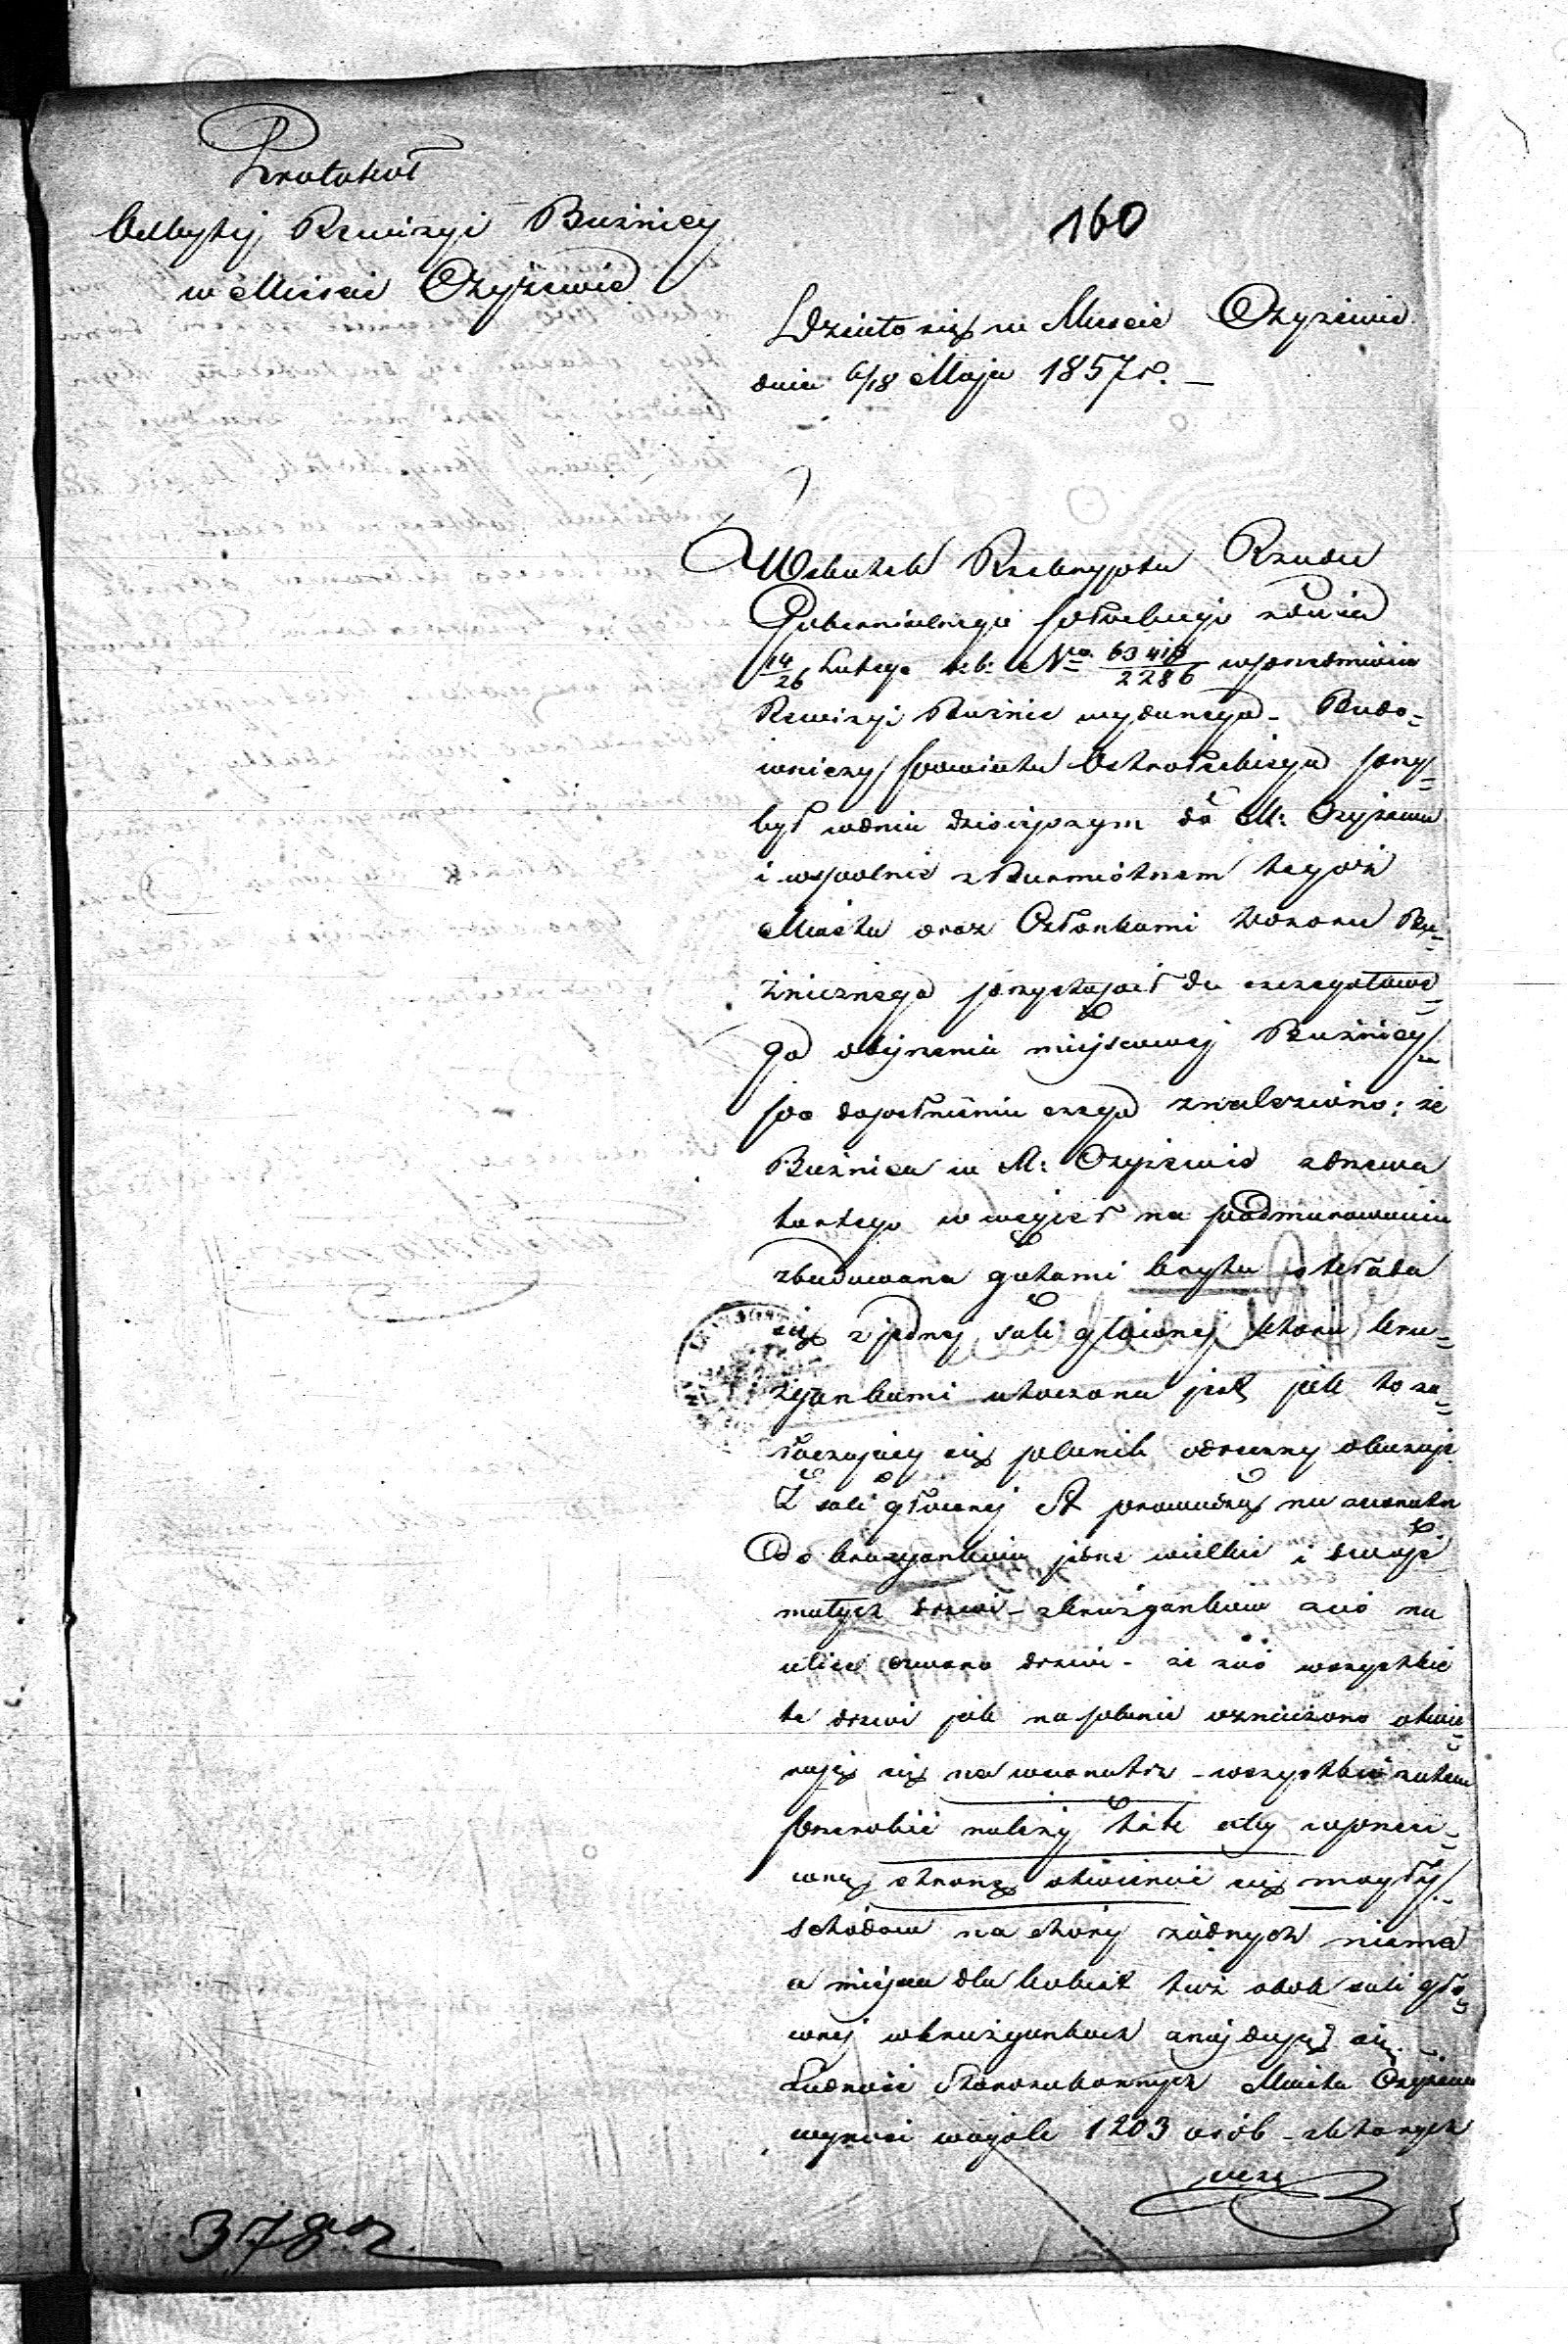 Protokół
Odbytej Rewizyi Buźnicy
w Mieście Czyżewie
160
Działo się w Mieście Czyżewie
dnia 6/18 Maja 1857 r. —
Wskutek Reskryptu Rządu
Gubernialnego Płockiego z dnia
14/26 Lutego r. b. No 63418/2286 w przedmiocie
Rewizyi Buźnic wydanego – Budo=
wniczy Powiatu Ostrołęckiego przy=
był w dniu dzisiejszym do M: Czyżewa
i wspólnie z Burmistrzem tegoż
Miasta oraz Członkami Dozoru Bu=
źniczego przystąpił do szczegółowe=
go obejrzenia miejscowej Buźnicy/=
po dopełnieniu czego znaleziono: że
Buźnica w M: Czyżewie z drzewa
tartego w węgieł na podmurowaniu
zbudowana gątami kryta składa
się z jednej sali głównej która kru=
żgankami otoczona jest jak to za=
łączający się planik odręczny okazuje
Z sali głównej A prowadzą na zewnątrz
do krużganków jedne wielkie i dwoje
małych drzwi – z krużganków zaś na
ulicę czworo drzwi – że zaś wszystkie
te drzwi jak na planie oznaczono otwie=
rają się na wewnątrz – wszystkie zatem
przerobić należy tak aby w przeci=
wną stronę otwierać się mogły/.–
Schodów na chóry żadnych niema
a miejsca dla kobiet tuż obok sali głó=
wnej w krużgankach znajdują się. –
Ludność Starozakonnych Miasta Czyżewa
wynosi wogóle 1203 osób – z których
378 2